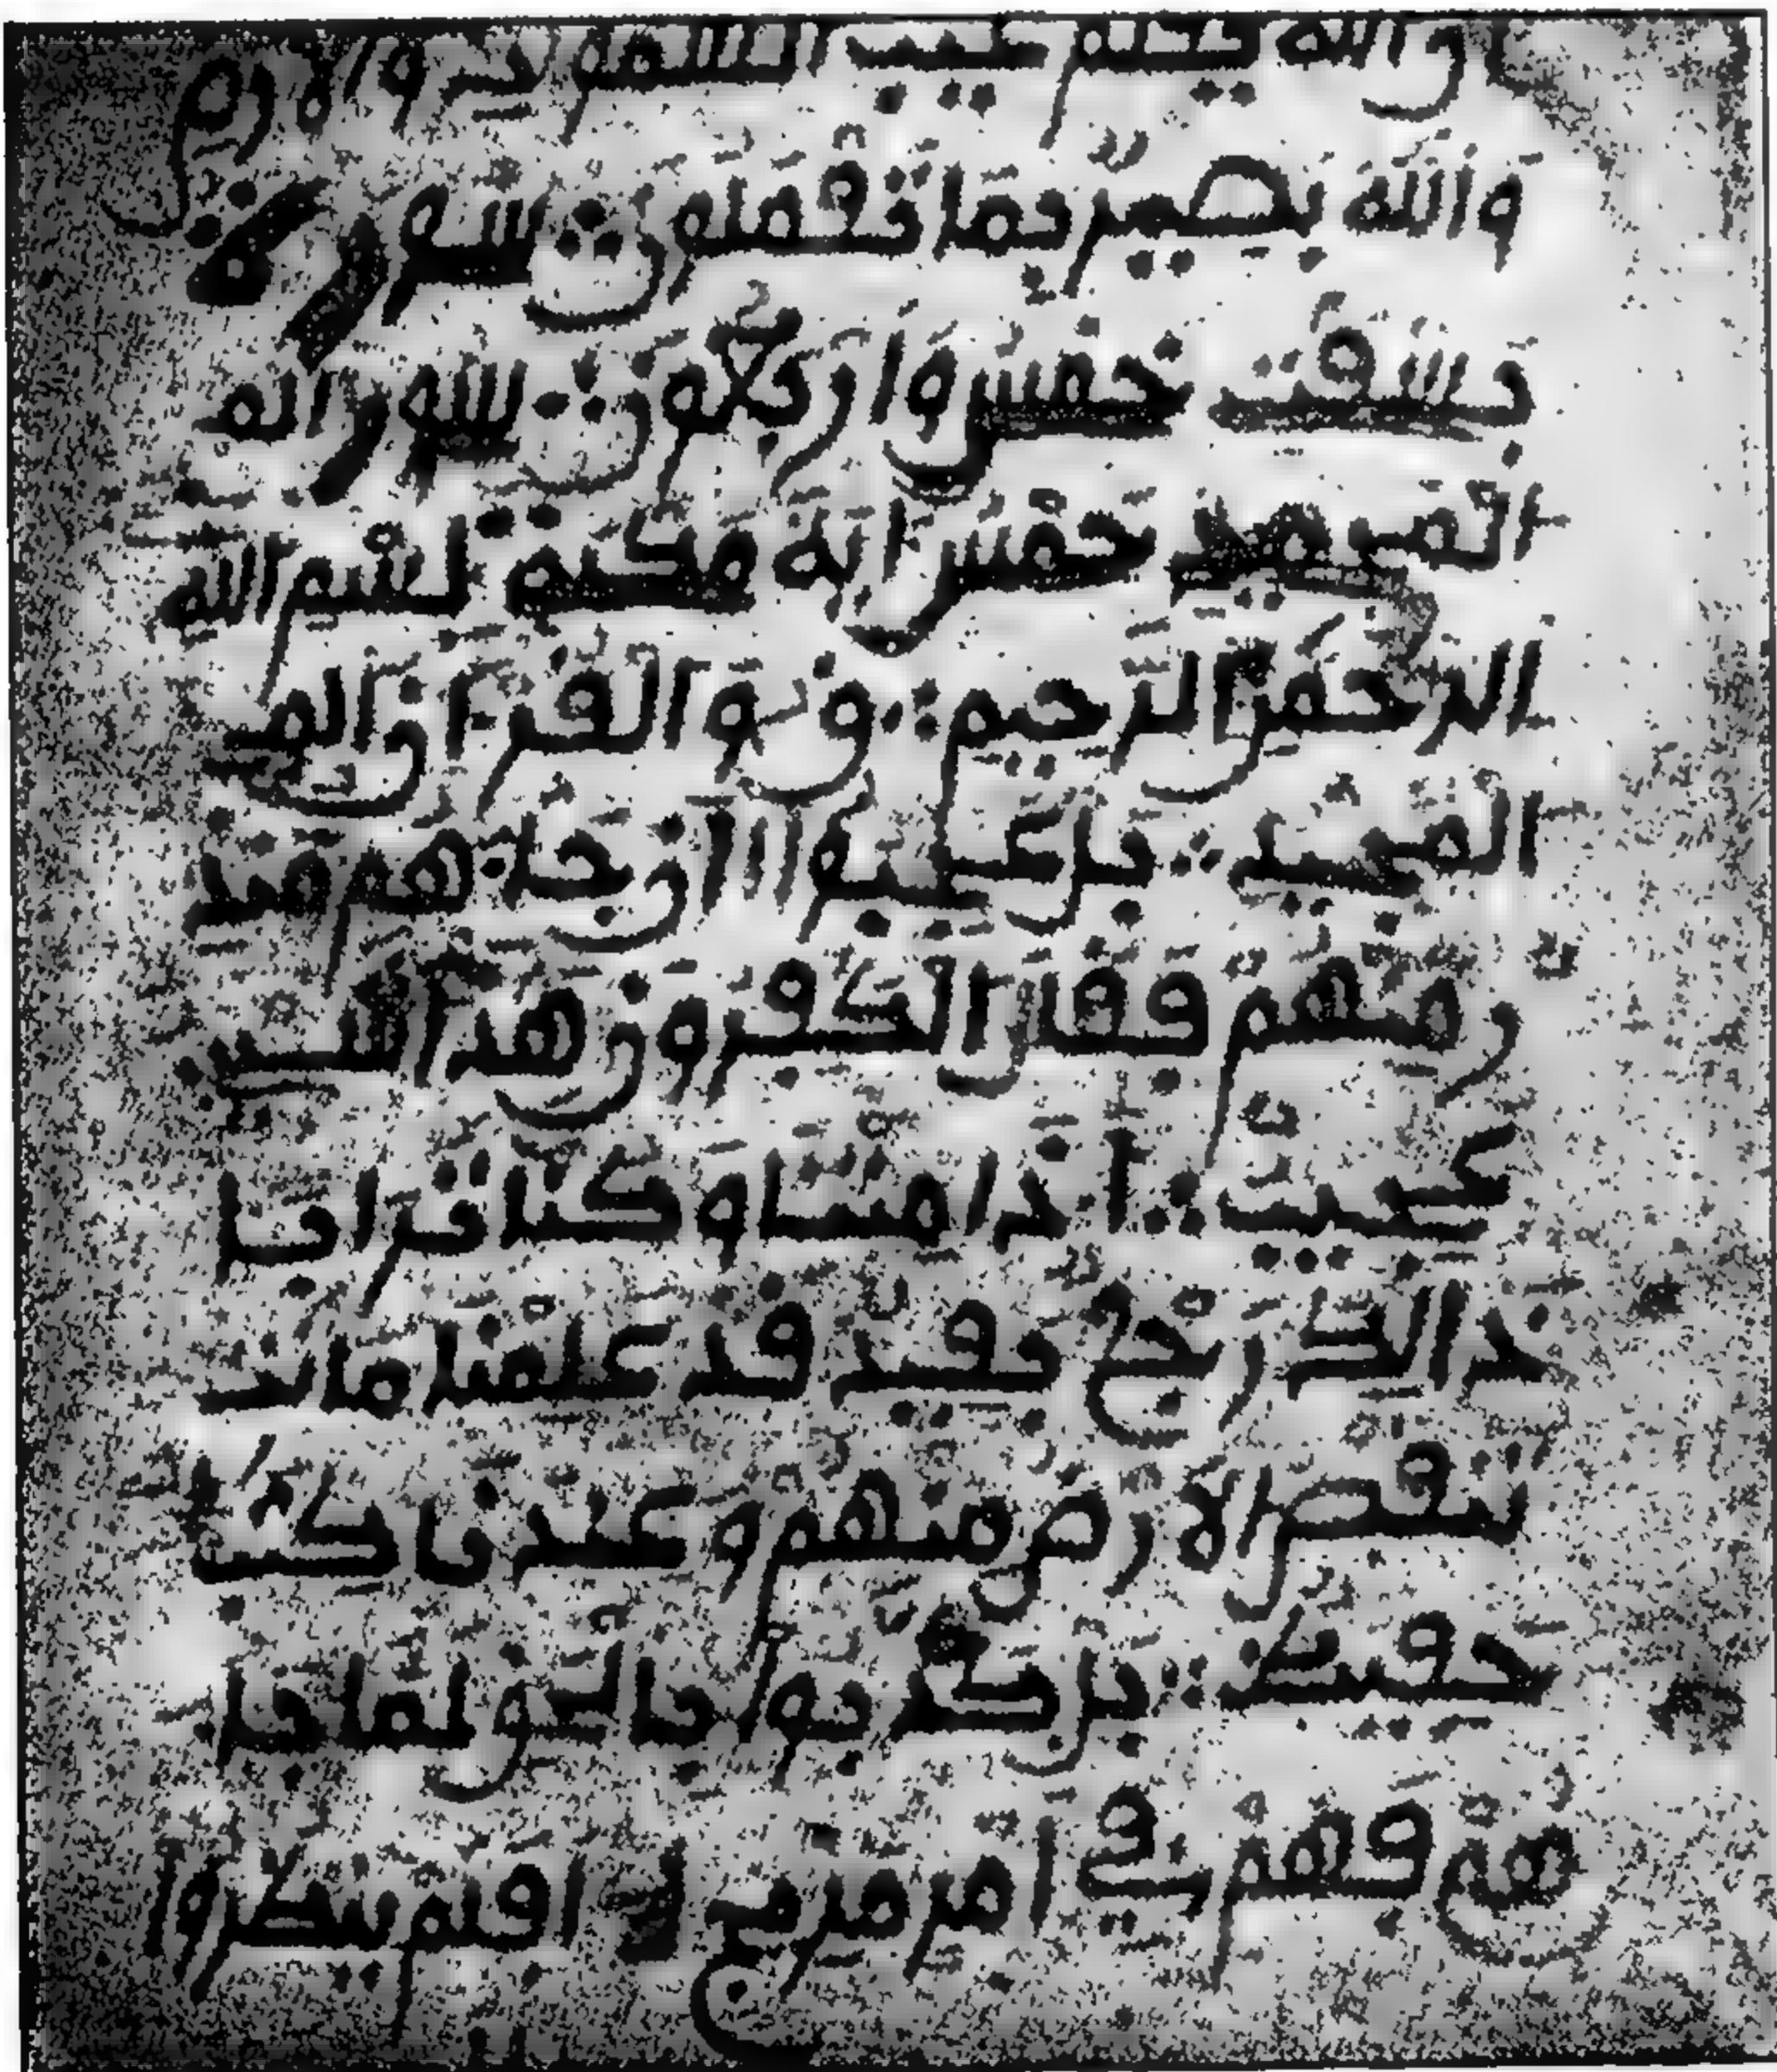 ن الله يعلم غيب السموت والارض
والله بصير بما تعملون سورة
بسقت خمس واربعون سورة الم
المجيد خمس اية مكية بسم الله
الرحمن الرحيم ق و القرءان الم
المجيد بل عجبوا ان جاءهم منذ
ر منهم فقال الكفرون هذا شيء
عجيب اءذا متنا وكنا ترابا
ذالك رجع بعيد قد علمنا ما تن
نقص الارض منهم وعندنا كتب
حفيظ بل كذبوا بالحق لما جا
هم فهم في امر مريج افلم ينظروا